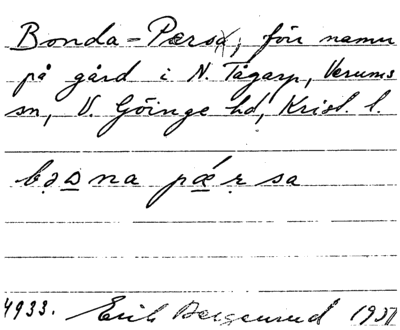 Bonda-Pærsa, förr namn
på gård i N. Tågarp, Verums
sn, V. Göinge hd, Krist. l.
bəana pǽrsa
4933. Erik 193